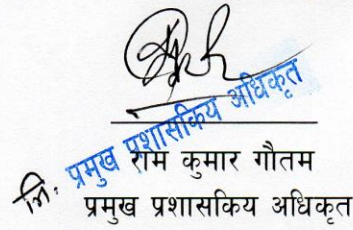 प्रमुख प्रशासकिय अधिकृत
राम कुमार गौतम
नि. प्रमुख प्रशासकिय अधिकृत